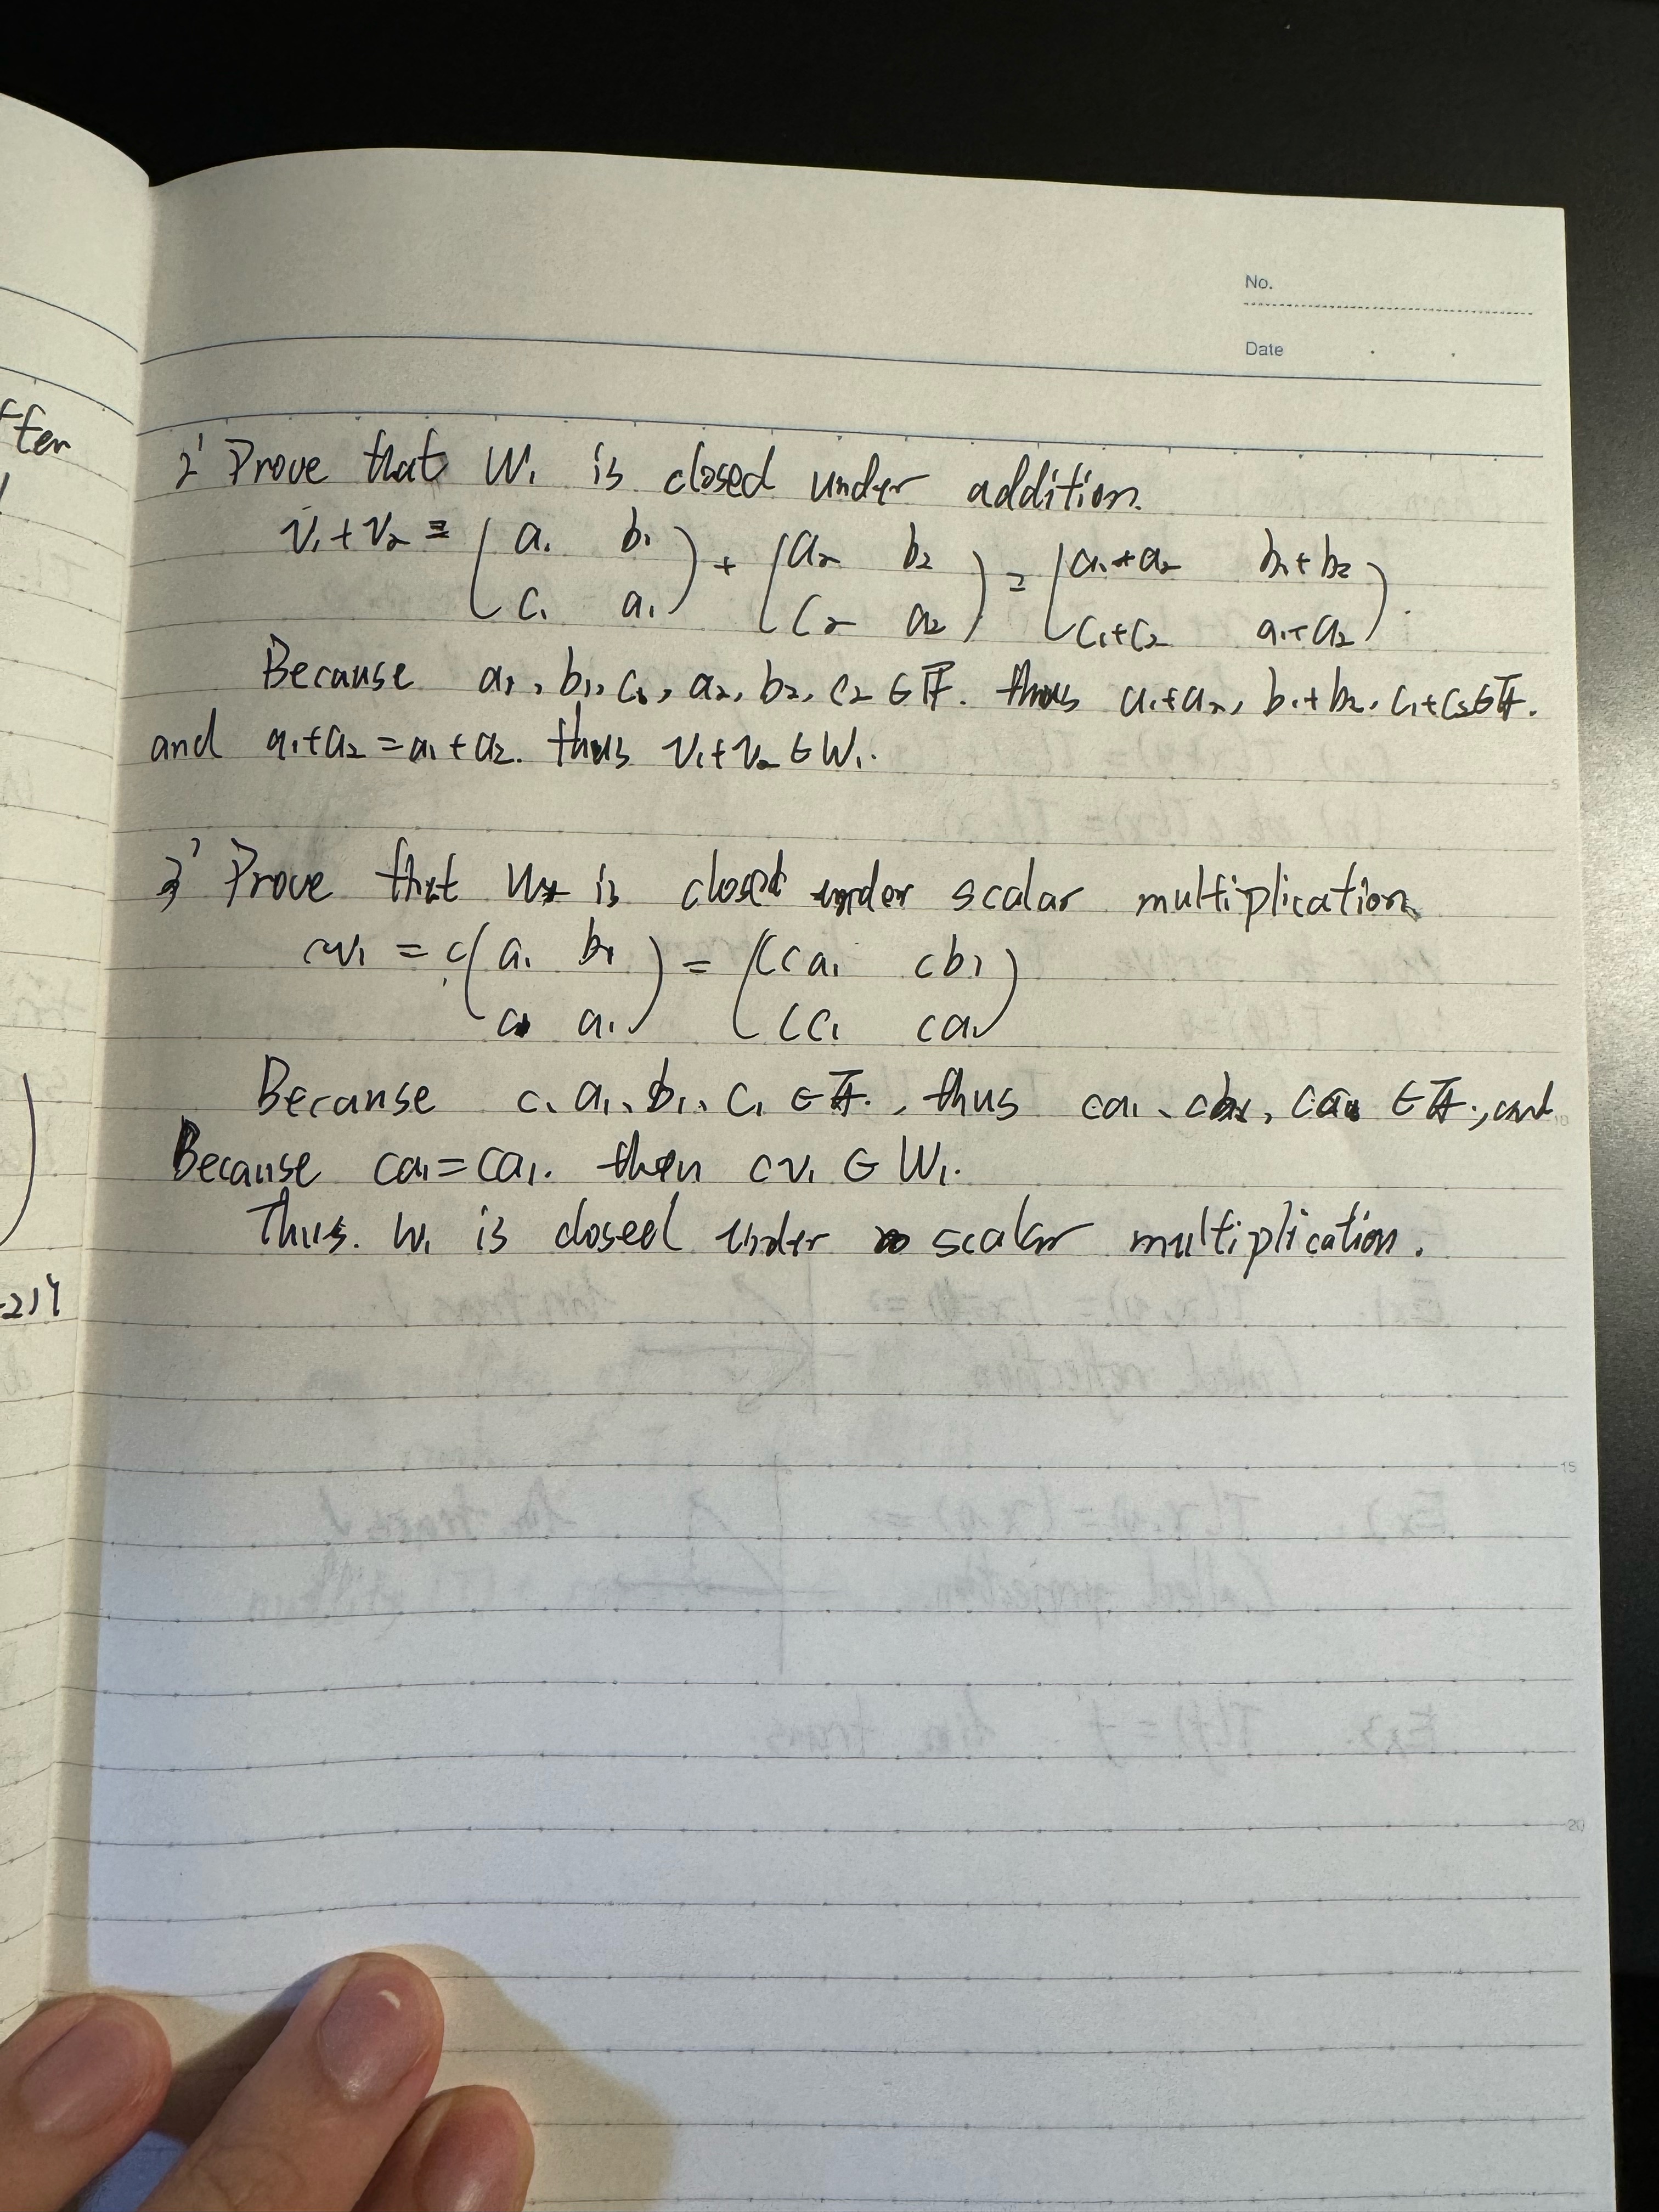 ften
-214
No.
Date
2' Prove that W₁ is closed under addition.
v₁+v₂ = ( a₁ b₁ ) + ( a₂ b₂ ) = ( a₁+a₂ b₁+b₂ )
c₁ a₁ c₂ a₂ c₁+c₂ a₁+a₂ .
Because a₁, b₁, c₁, a₂, b₂, c₂ ∈ F. thus a₁+a₂, b₁+b₂, c₁+c₂ ∈ F.
and a₁+a₂ = a₁+a₂. thus v₁+v₂ ∈ W₁.
5
3' Prove that W₁ is closed under scalar multiplication.
cv₁ = c( a₁ b₁ ) = ( ca₁ cb₁ )
c₁ a₁ cc₁ ca₁
Because c, a₁, b₁, c₁ ∈ F., thus ca₁, cb₁, ∈ F., and
10
Because ca₁ = ca₁. then cv₁ ∈ W₁.
Thus. W₁ is closed under scalar multiplication.
15
20